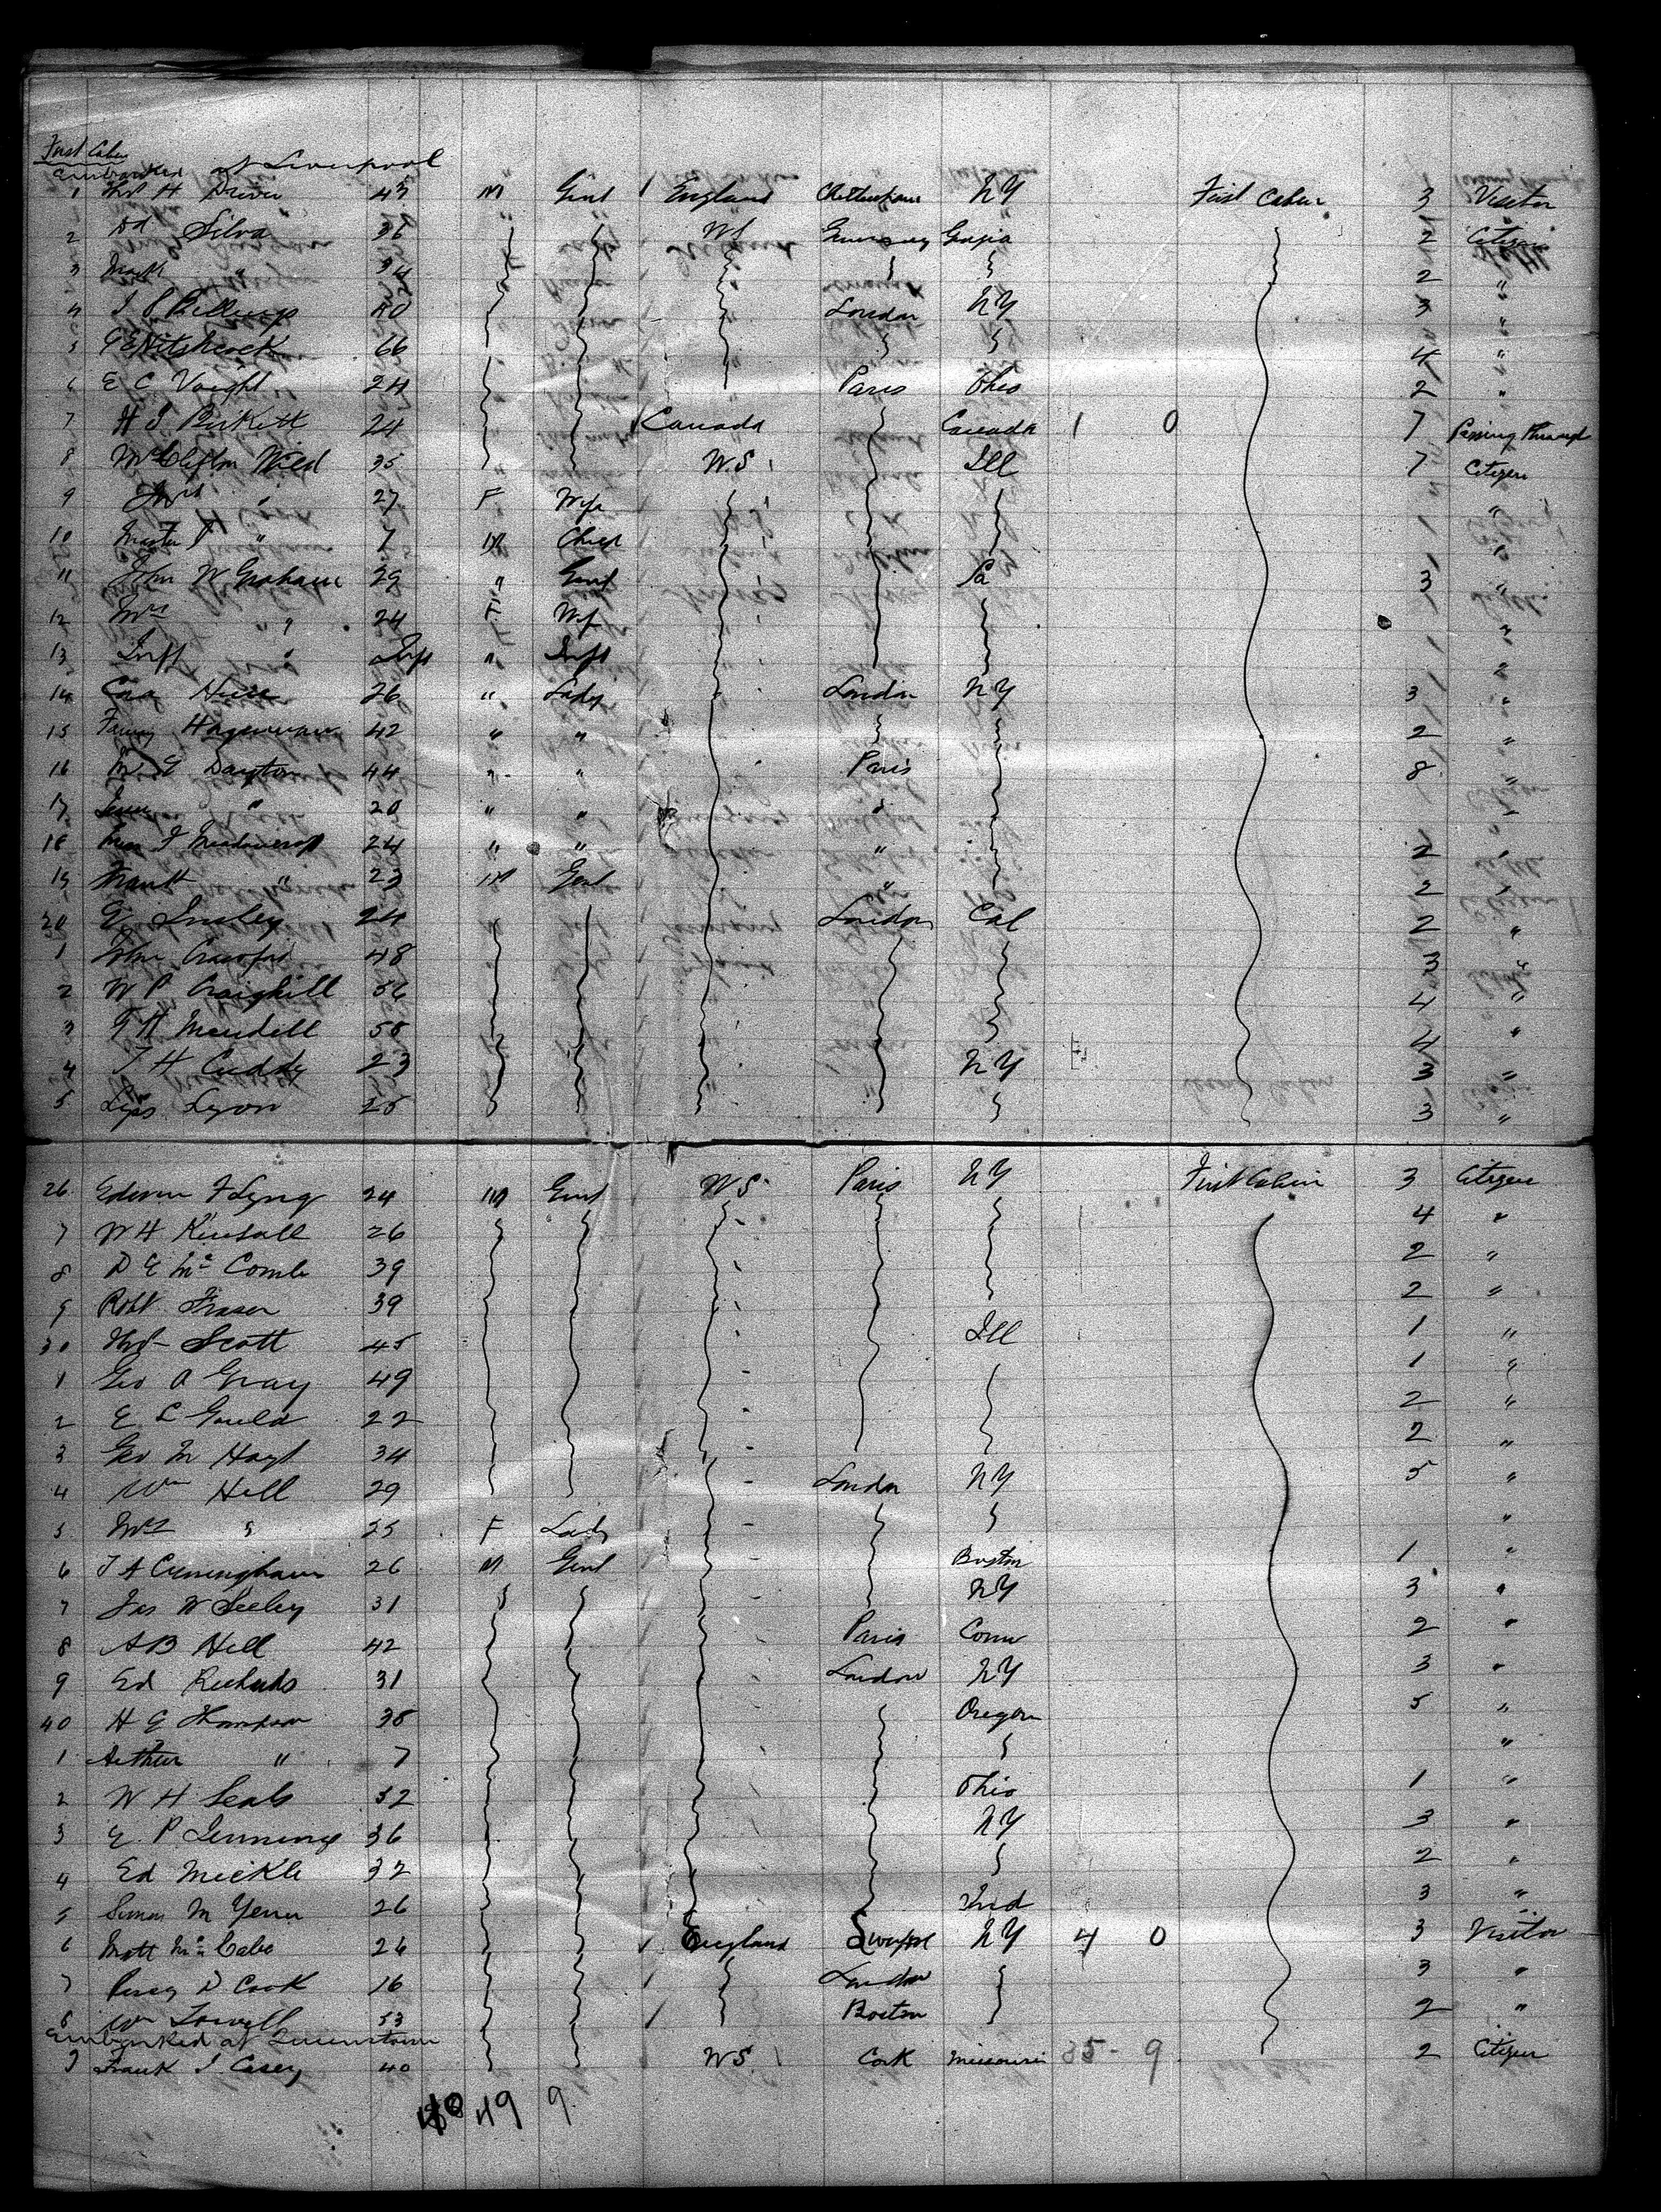 First Cabin
Embarked at Liverpool
1 H Driver 43 M Gent England NY First Cabin 3 Visitor
2 Ed Silva 36 U.S. Guernsey 2 Citizen
3 Mark " 34 2 "
4 Billups 40 London NY 3 "
5 Hitchcock 66 4 "
6 E C Voight 24 Paris Ohio 2 "
7 H J Birkett 24 Canada Canada 1 0 7 Passing through
8 Mr Clifton Wild 35 U.S. Ill 7 Citizen
9 Mrs " 27 F Wife "
10 Master J " 7 M Child "
11 John W Graham 29 " Gent Pa 3 "
12 Mrs " 24 F Wife "
13 Inft " Inft " Inft "
14 Cora 26 " Lady London NY 3 "
15 Fanny 42 " " 2 "
16 Dayton 44 " " Paris 8 "
17 " 20 " " " "
18 Miss J 24 " " " 2 "
19 Frank " 23 M Gent " 2 "
20 24 London Cal 2 "
1 John Crawford 48 3 "
2 W P Craighill 56 4 "
3 G H Mendell 58 4 "
4 T H Cuddy 23 NY 3 "
5 Lyon 25 3 "
26 Edwin F Lyng 24 M Gent U.S. Paris NY First Cabin 3 Citizen
7 W H Kimball 26 4 "
8 D E Mc Comb 39 2 "
9 Robt Fraser 39 2 "
30 Scott 45 Ill 1 "
1 Geo A Gray 49 1 "
2 E L Gould 22 2 "
3 Geo M Hoyt 34 2 "
4 Wm Hill 29 London NY 5 "
5 Mrs " 25 F Lady "
6 T A Cunningham 26 M Gent Boston 1 "
7 Jas W Seeley 31 NY 3 "
8 A B Hill 42 Paris Conn 2 "
9 Ed Richards 31 London NY 3 "
40 H E Thompson 38 Oregon 5 "
1 Arthur " 7 "
2 W H Seals 32 Ohio 1 "
3 E P Jennings 36 NY 3 "
4 Ed Mickle 32 2 "
5 Simon M Yenn 26 Ind 3 "
6 Matt McCabe 26 England NY 4 0 3 Visitor
7 Percy D Cook 16 London 3 "
8 Wm Lowell 53 Boston 2 "
Embarked at Queenstown
9 Frank J. Casey 40 U.S. Cork Missouri 35 - 9 2 Citizen
49 9